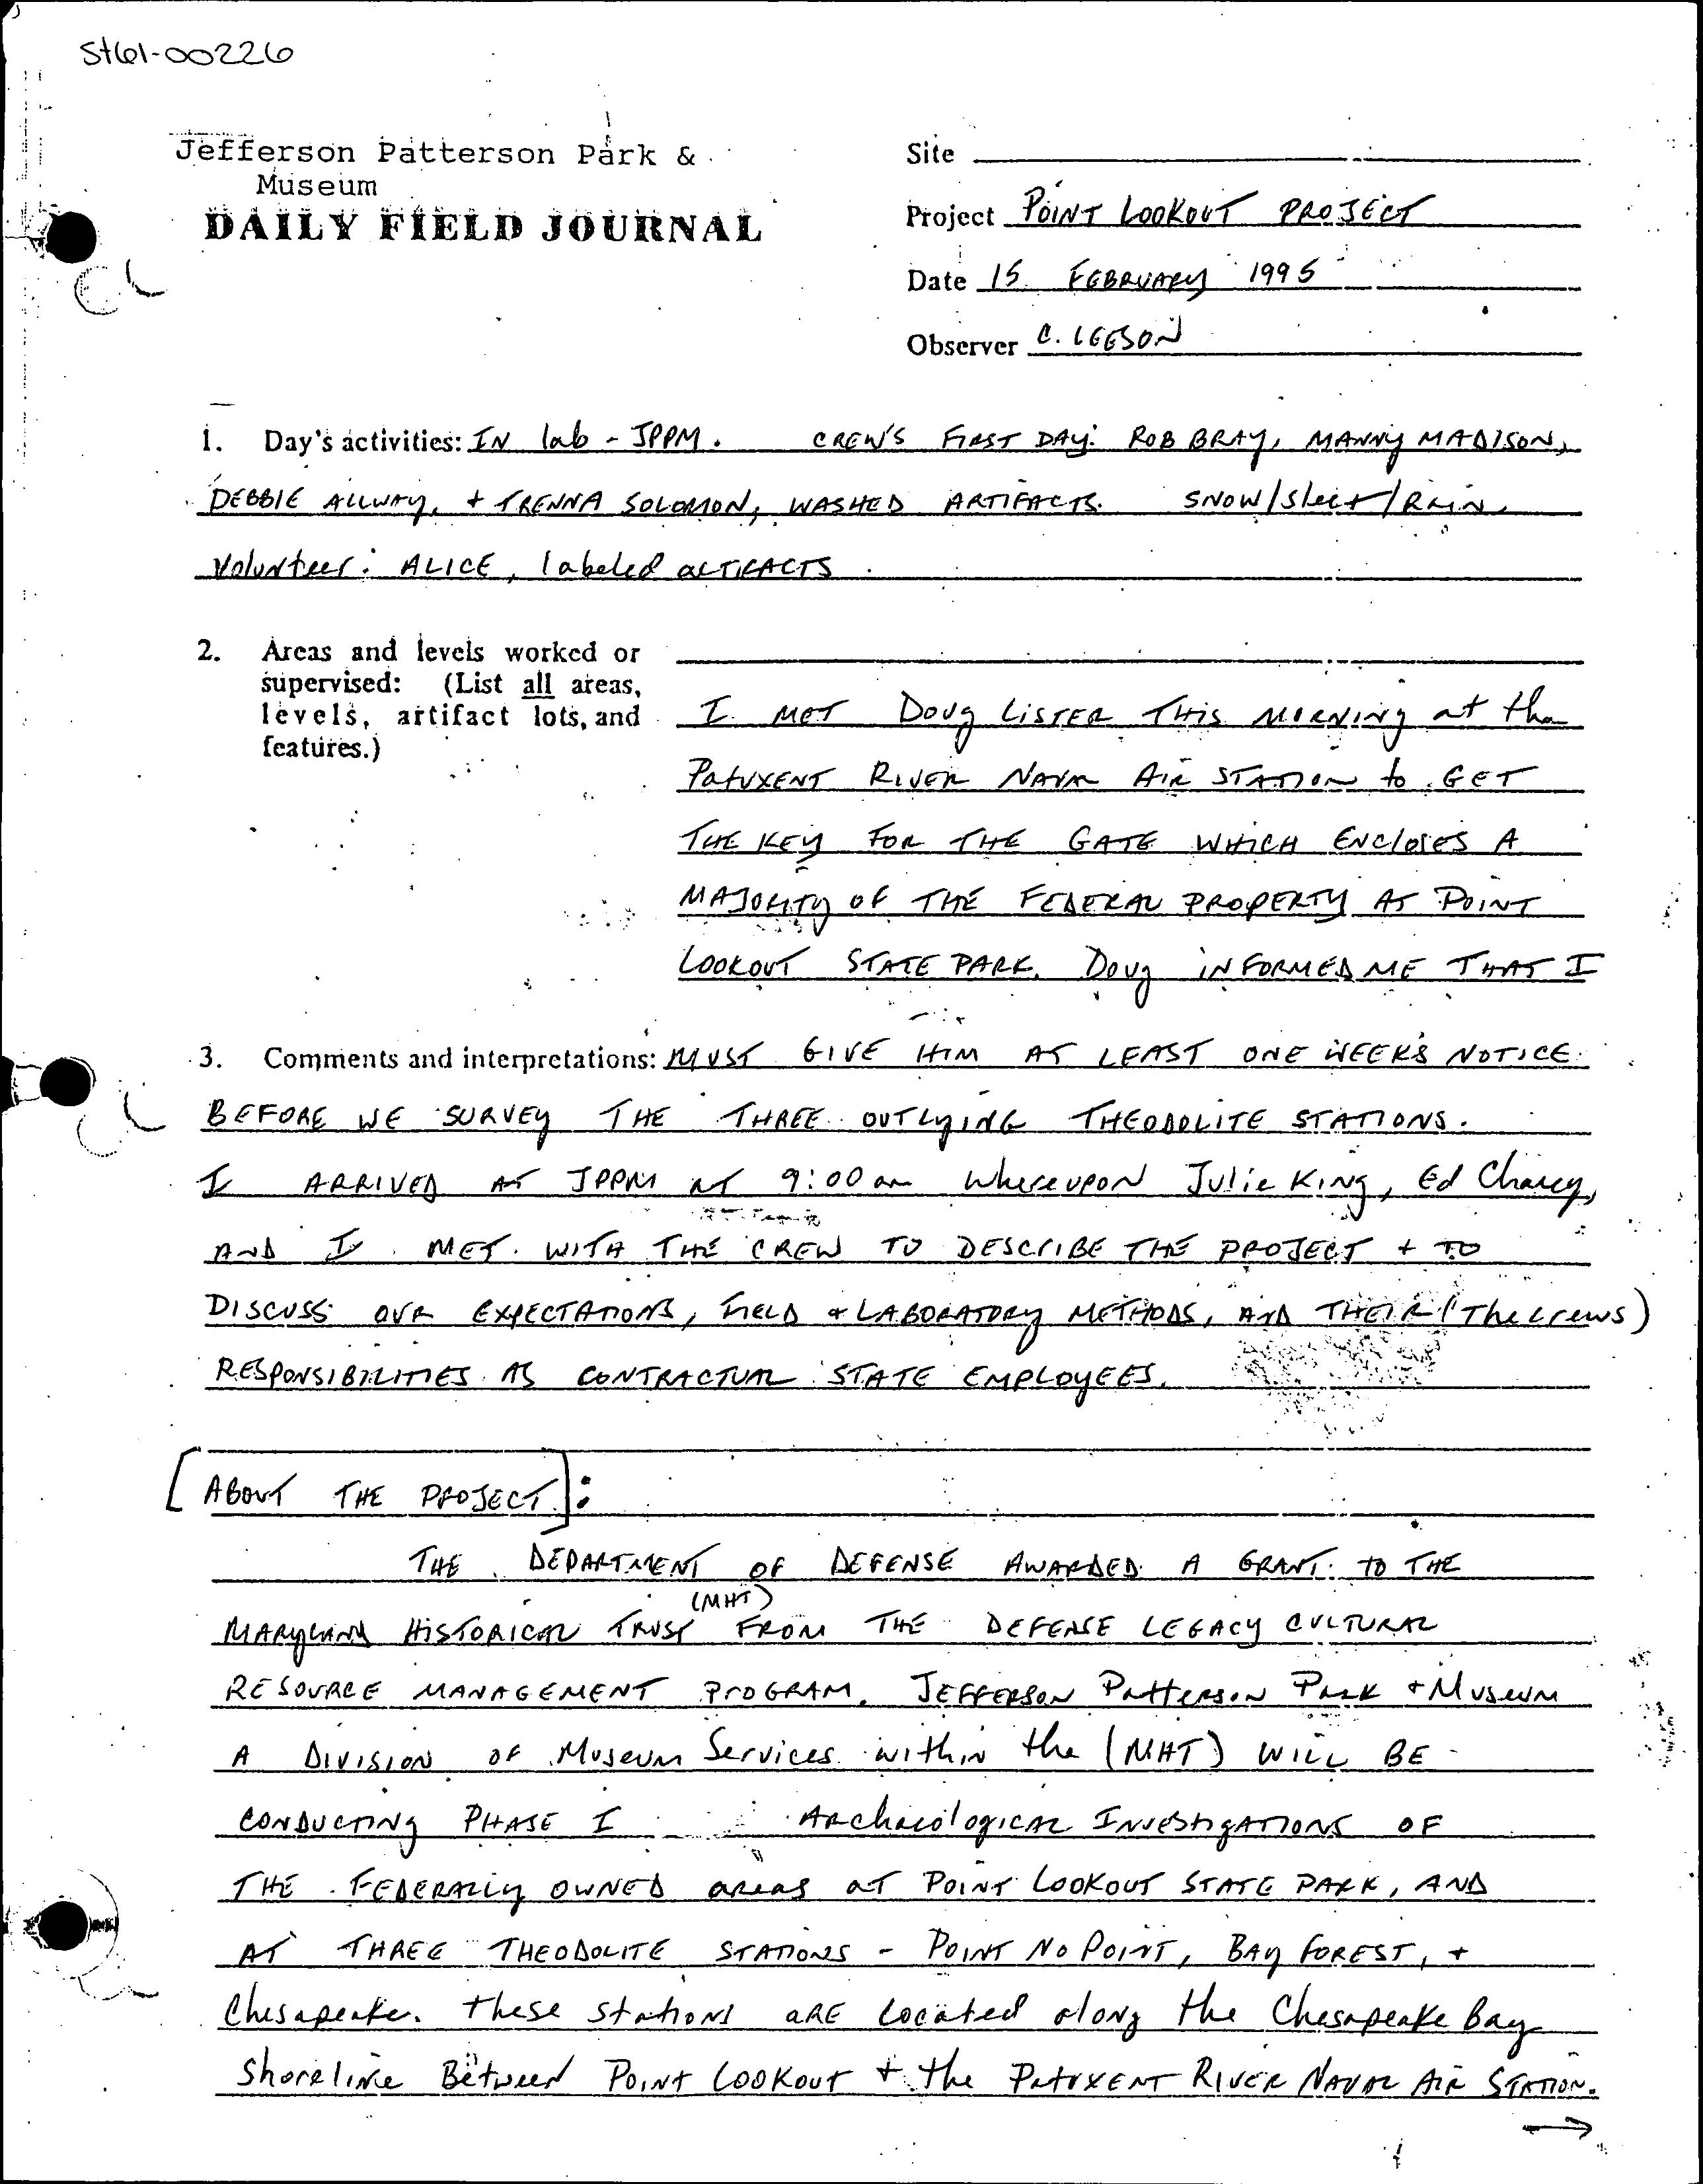 St61-00226
Jefferson Patterson Park &
Museum
DAILY FIELD JOURNAL
Site
Project POINT LOOKOUT PROJECT
Date 15 FEBRUARY 1995
Observer C. LEESON
1. Day's activities: IN lab - JPPM. CREW'S FIRST DAY: ROB BRAY, MANNY MADISON,
DEBBIE ALLWAY, + TRENNA SOLOMON, WASHED ARTIFACTS. SNOW/Sleet/RAIN.
Volunteer: ALICE, labeled ARTIFACTS.
2. Areas and levels worked or
supervised: (List all areas,
levels, artifact lots, and
features.)
I MET Doug LISTER THIS MORNING at the
PATUXENT RIVER NAVAL AIR STATION to GET
THE KEY FOR THE GATE WHICH ENCLOSES A
MAJORITY OF THE FEDERAL PROPERTY AT POINT
LOOKOUT STATE PARK. Doug INFORMED ME THAT I
3. Comments and interpretations: MUST GIVE HIM AT LEAST ONE WEEK'S NOTICE
BEFORE WE SURVEY THE THREE OUTLYING THEODOLITE STATIONS.
I ARRIVED AT JPPM AT 9:00 am whereupon Julie King, Ed Chaney,
AND I MET WITH THE CREW TO DESCRIBE THE PROJECT + TO
DISCUSS OUR EXPECTATIONS, FIELD & LABORATORY METHODS, AND THEIR (The crews)
RESPONSIBILITIES AS CONTRACTUAL STATE EMPLOYEES.
[ABOUT THE PROJECT]:
THE DEPARTMENT OF DEFENSE AWARDED A GRANT TO THE
MARYLAND HISTORICAL TRUST (MHT) FROM THE DEFENSE LEGACY CULTURAL
RESOURCE MANAGEMENT PROGRAM. JEFFERSON Patterson Park + Museum
A DIVISION OF Museum Services within the (MHT) WILL BE
CONDUCTING PHASE I Archaeological INVESTIGATIONS OF
THE FEDERALLY OWNED areas at POINT LOOKOUT STATE PARK, AND
AT THREE THEODOLITE STATIONS - POINT NO POINT, BAY FOREST, +
Chesapeake. These stations ARE located along the Chesapeake Bay
Shoreline Between POINT LOOKOUT + the PATUXENT RIVER NAVAL AIR STATION.
→